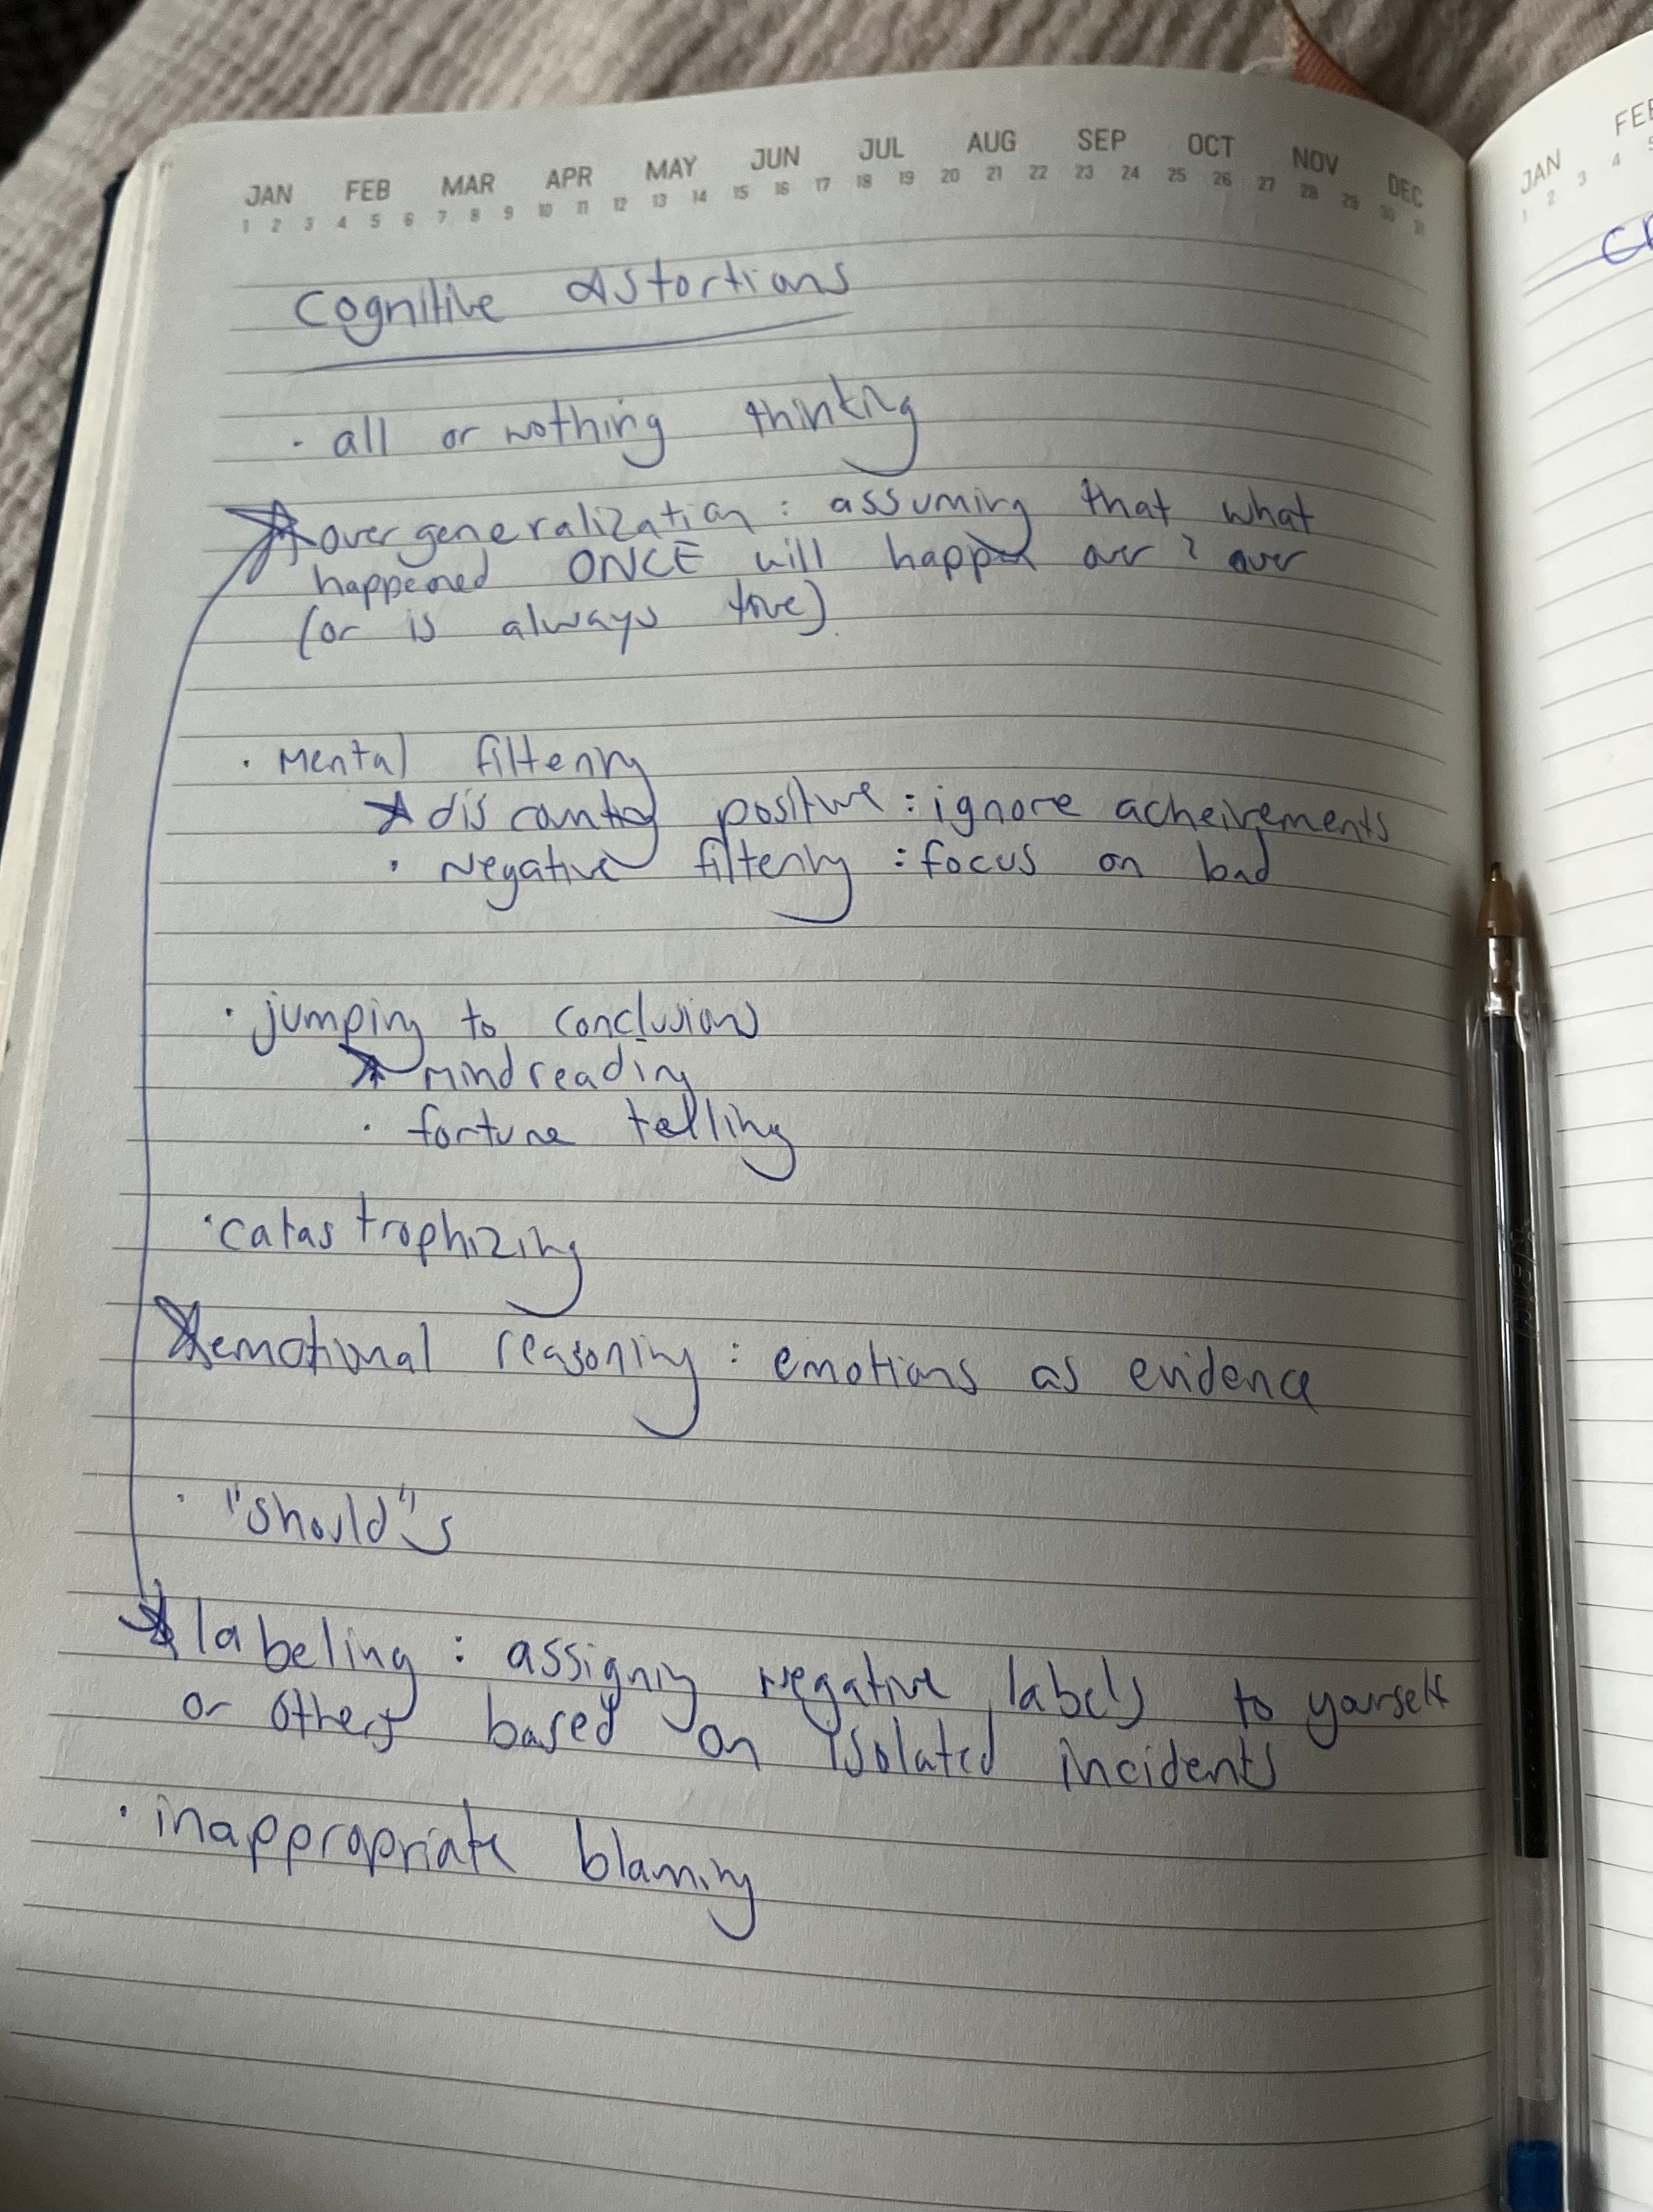 JAN FEB MAR APR MAY JUN JUL AUG SEP OCT NOV DEC
1 2 3 4 5 6 7 8 9 10 11 12 13 14 15 16 17 18 19 20 21 22 23 24 25 26 27 28 29 30 31
Cognitive distortions
· all or nothing thinking
overgeneralization : assuming that what
happened ONCE will happen over & over
(or is always true)
· Mental filtering
discounting positive : ignore acheivements
· Negative filtering : focus on bad
· jumping to conclusions
mindreading
· fortune telling
· catastrophizing
emotional reasoning : emotions as evidence
· "should"s
labeling : assigning negative labels to yourself
or others based on isolated incidents
· inappropriate blaming
JAN
1 2 3 4